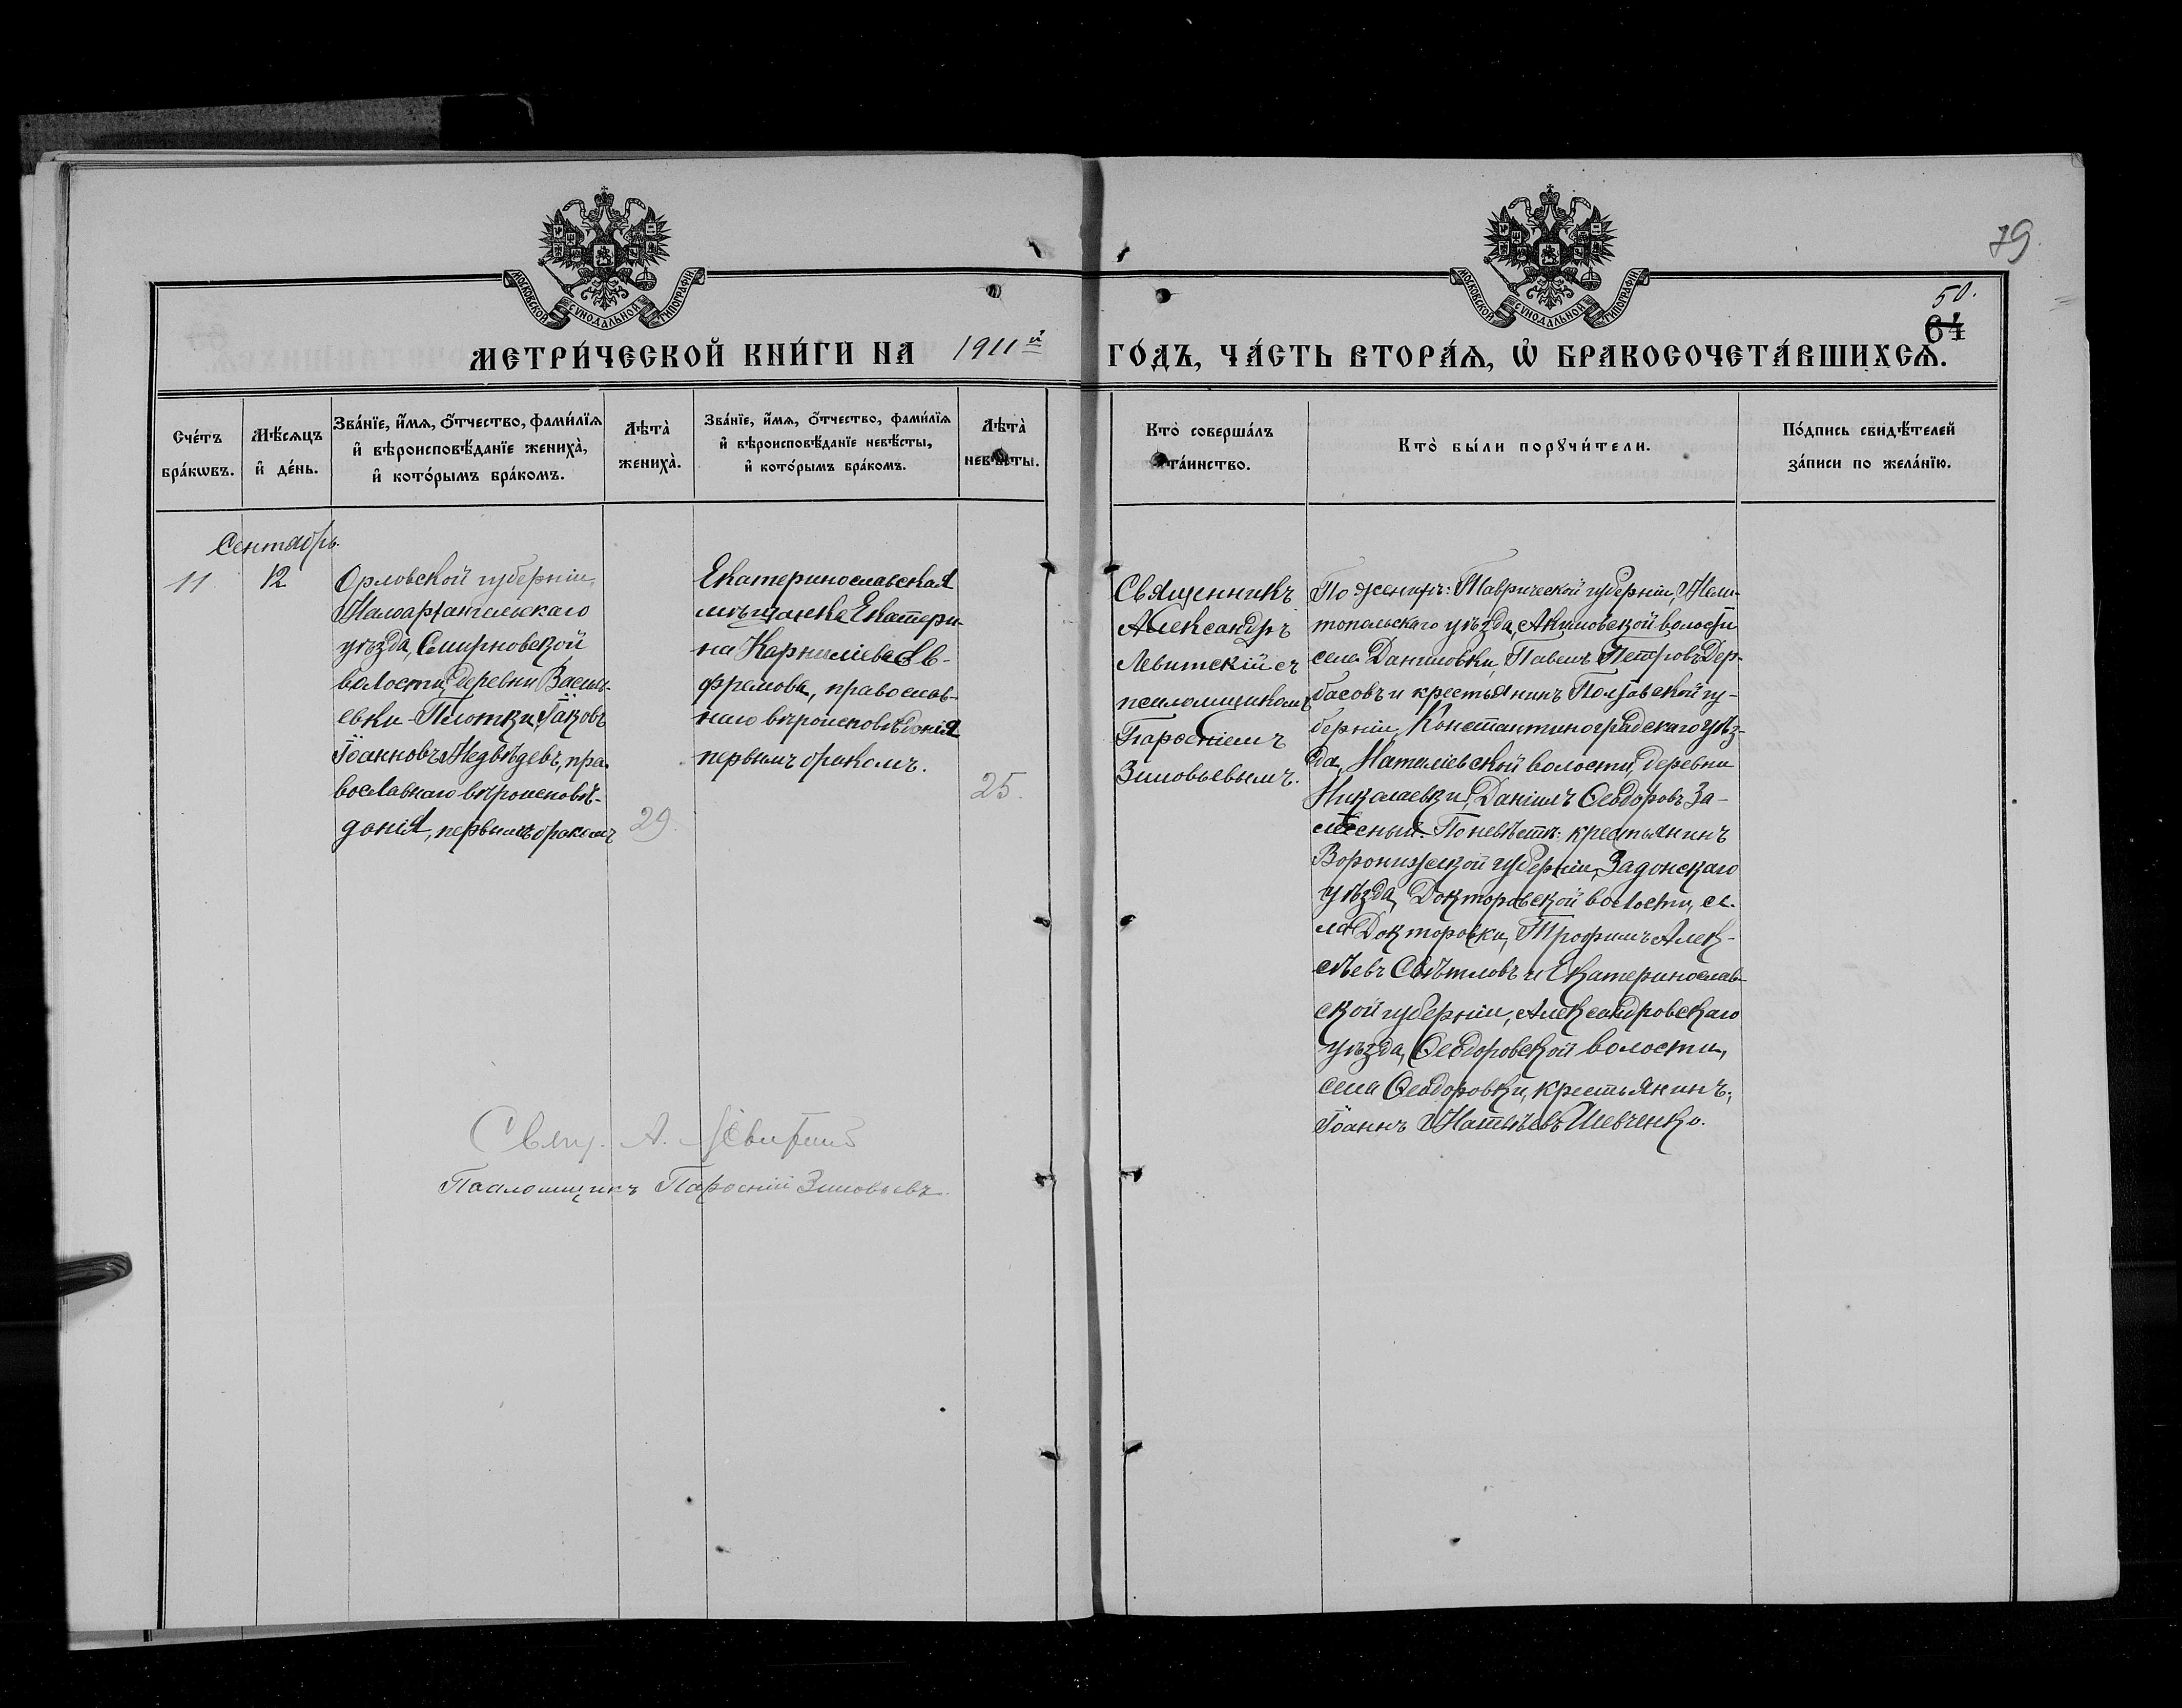 79.
50.
64
МОСКОВСКОЙ СѴНОДАЛЬНОЙ ТИПОГРАФІИ
МОСКОВСКОЙ СѴНОДАЛЬНОЙ ТИПОГРАФІИ
МЕТРИ́ЧЕСКОЙ КНИ́ГИ НА 1911й ГО́ДЪ, ЧА́СТЬ ВТОРА́Я, Ѡ҆ БРАКОСОЧЕТА́ВШИХСѦ.
Сче́тъ
бра́кѡвъ.
Мѣ́сѧцъ
и҆ де́нь.
Зва́нїе, и҆́мѧ, о҆́тчество, фами́лїѧ
и҆ вѣроисповѣ́данїе жениха̀,
и҆ кото́рымъ бра́комъ.
Лѣта̀
жениха̀.
Зва́нїе, и҆́мѧ, о҆́тчество, фами́лїѧ
и҆ вѣроисповѣ́данїе невѣ́сты,
и҆ кото́рымъ бра́комъ.
Лѣта̀
невѣ́сты.
Кто̀ соверша́лъ
та́инство.
Кто̀ бы́ли порꙋчи́тели.
По́дпись свидѣ́телей
за́писи по жела́нїю.
Сентябрь.
11
12
Орловской губерніи,
Малоархангельскаго
уѣзда, Смирновской
волости, деревни Василь-
евки-Плотки, Іаковъ
Іоанновъ Медвѣдевъ, пра-
вославнаго вѣроисповѣ-
данія, первымъ бракомъ
29.
Екатеринославская
мѣщанка Екатери-
на Карнилієва Ев-
фремова, православ-
наго вѣроисповѣданія
первымъ бракомъ.
25.
Священникъ
Александръ
Левитскій съ
псаломщикомъ
Парѳеніемъ
Зиновьевымъ.
По женихѣ: Таврической губерніи, Мели-
топольскаго уѣзда, Акимовской волости
села Даниловки, Павелъ Петровъ Дер-
басовъ и крестьянинъ Полтавской гу-
берніи, Константиноградскаго уѣз-
да, Наталіевской волости, деревни
Николаевки, Даніилъ Ѳеодоровъ За-
лѣсный. По невѣстѣ: крестьянинъ
Воронижской губерніи, Задонскаго
уѣзда, Докторовской волости, се-
ла Докторовки, Трофимъ Алек-
сѣевъ Свѣтловъ и Екатеринослав-
ской губерніи, Александровскаго
уѣзда, Ѳеодоровской волости,
села Ѳеодоровки, крестьянинъ,
Іоаннъ Матвѣевъ Шевченко.
Свящ. А. Левитскій
Псаломщикъ Парѳеній Зиновьевъ.